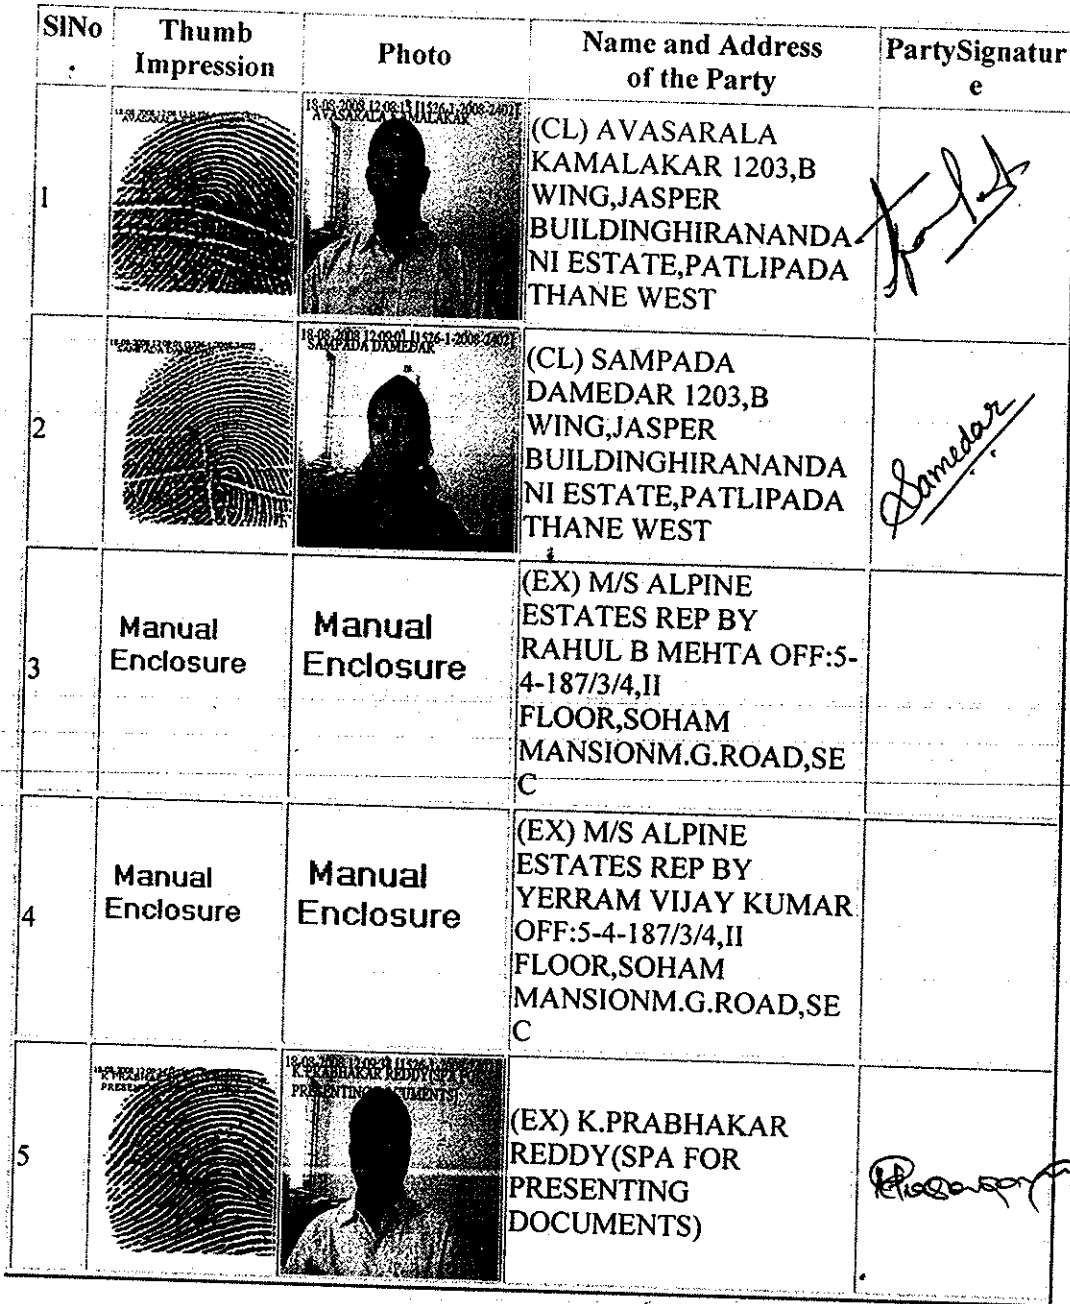 SlNo
.
Thumb
Impression
Photo
Name and Address
of the Party
PartySignatur
e
1
18-08-2008 12:08:15 [1526-1-2008-2402]
AVASARALA KAMALAKAR
(CL) AVASARALA
KAMALAKAR 1203,B
WING,JASPER
BUILDINGHIRANANDA
NI ESTATE,PATLIPADA
THANE WEST
2
18-08-2008 12:09:01 [1526-1-2008-2402]
SAMPADA DAMEDAR
(CL) SAMPADA
DAMEDAR 1203,B
WING,JASPER
BUILDINGHIRANANDA
NI ESTATE,PATLIPADA
THANE WEST
Samedar
3
Manual
Enclosure
Manual
Enclosure
(EX) M/S ALPINE
ESTATES REP BY
RAHUL B MEHTA OFF:5-
4-187/3/4,II
FLOOR,SOHAM
MANSIONM.G.ROAD,SE
C
4
Manual
Enclosure
Manual
Enclosure
(EX) M/S ALPINE
ESTATES REP BY
YERRAM VIJAY KUMAR
OFF:5-4-187/3/4,II
FLOOR,SOHAM
MANSIONM.G.ROAD,SE
C
5
K.PRABHAKAR REDDY(SPA FOR
PRESENTING DOCUMENTS)
(EX) K.PRABHAKAR
REDDY(SPA FOR
PRESENTING
DOCUMENTS)